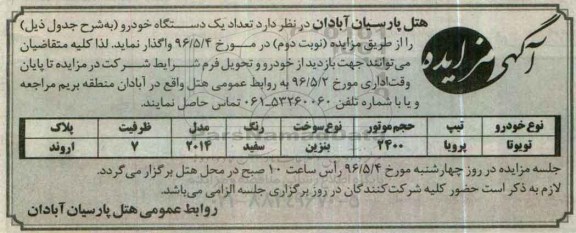 آگهی مزایده
هتل پارسیان آبادان در نظر دارد تعداد یک دستگاه خودرو (به‌شرح جدول ذیل)
را از طریق مزایده (نوبت دوم) در مورخ ۹۶/۵/۴ واگذار نماید. لذا کلیه متقاضیان
می‌توانند جهت بازدید از خودرو و تحویل فرم شرایط شرکت در مزایده تا پایان
وقت‌اداری مورخ ۹۶/۵/۲ به روابط عمومی هتل واقع در آبادان منطقه بریم مراجعه
و یا با شماره تلفن ۵۳۲۶۰۰۶۰-۰۶۱ تماس حاصل نمایند.
نوع خودرو تیپ حجم‌موتور نوع‌سوخت رنگ مدل ظرفیت پلاک
تویوتا پرویا ۲۴۰۰ بنزین سفید ۲۰۱۴ ۷ اروند
جلسه مزایده در روز چهارشنبه مورخ ۹۶/۵/۴ رأس ساعت ۱۰ صبح در محل هتل برگزار می‌گردد.
لازم به ذکر است حضور کلیه شرکت‌کنندگان در روز برگزاری جلسه الزامی می‌باشد.
روابط عمومی هتل پارسیان آبادان